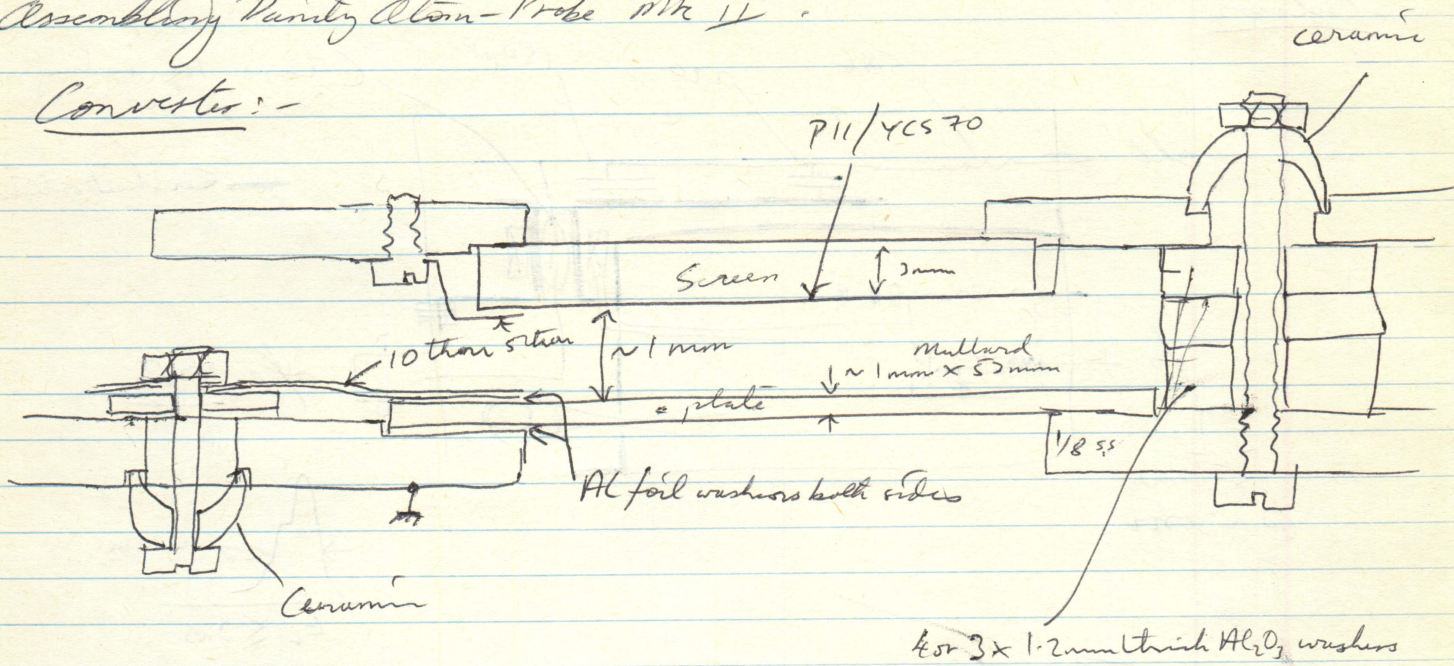 Assembling Atom-Probe Mk II.
ceramic
Converter:-
P11/YCS70
Screen
3mm
10 thou
~1 mm
Mullard
~1mm x 53mm
plate
1/8 ss
Al foil washers both sides
Ceramic
4 or 3 x 1.2mm thick Al₂O₃ washers